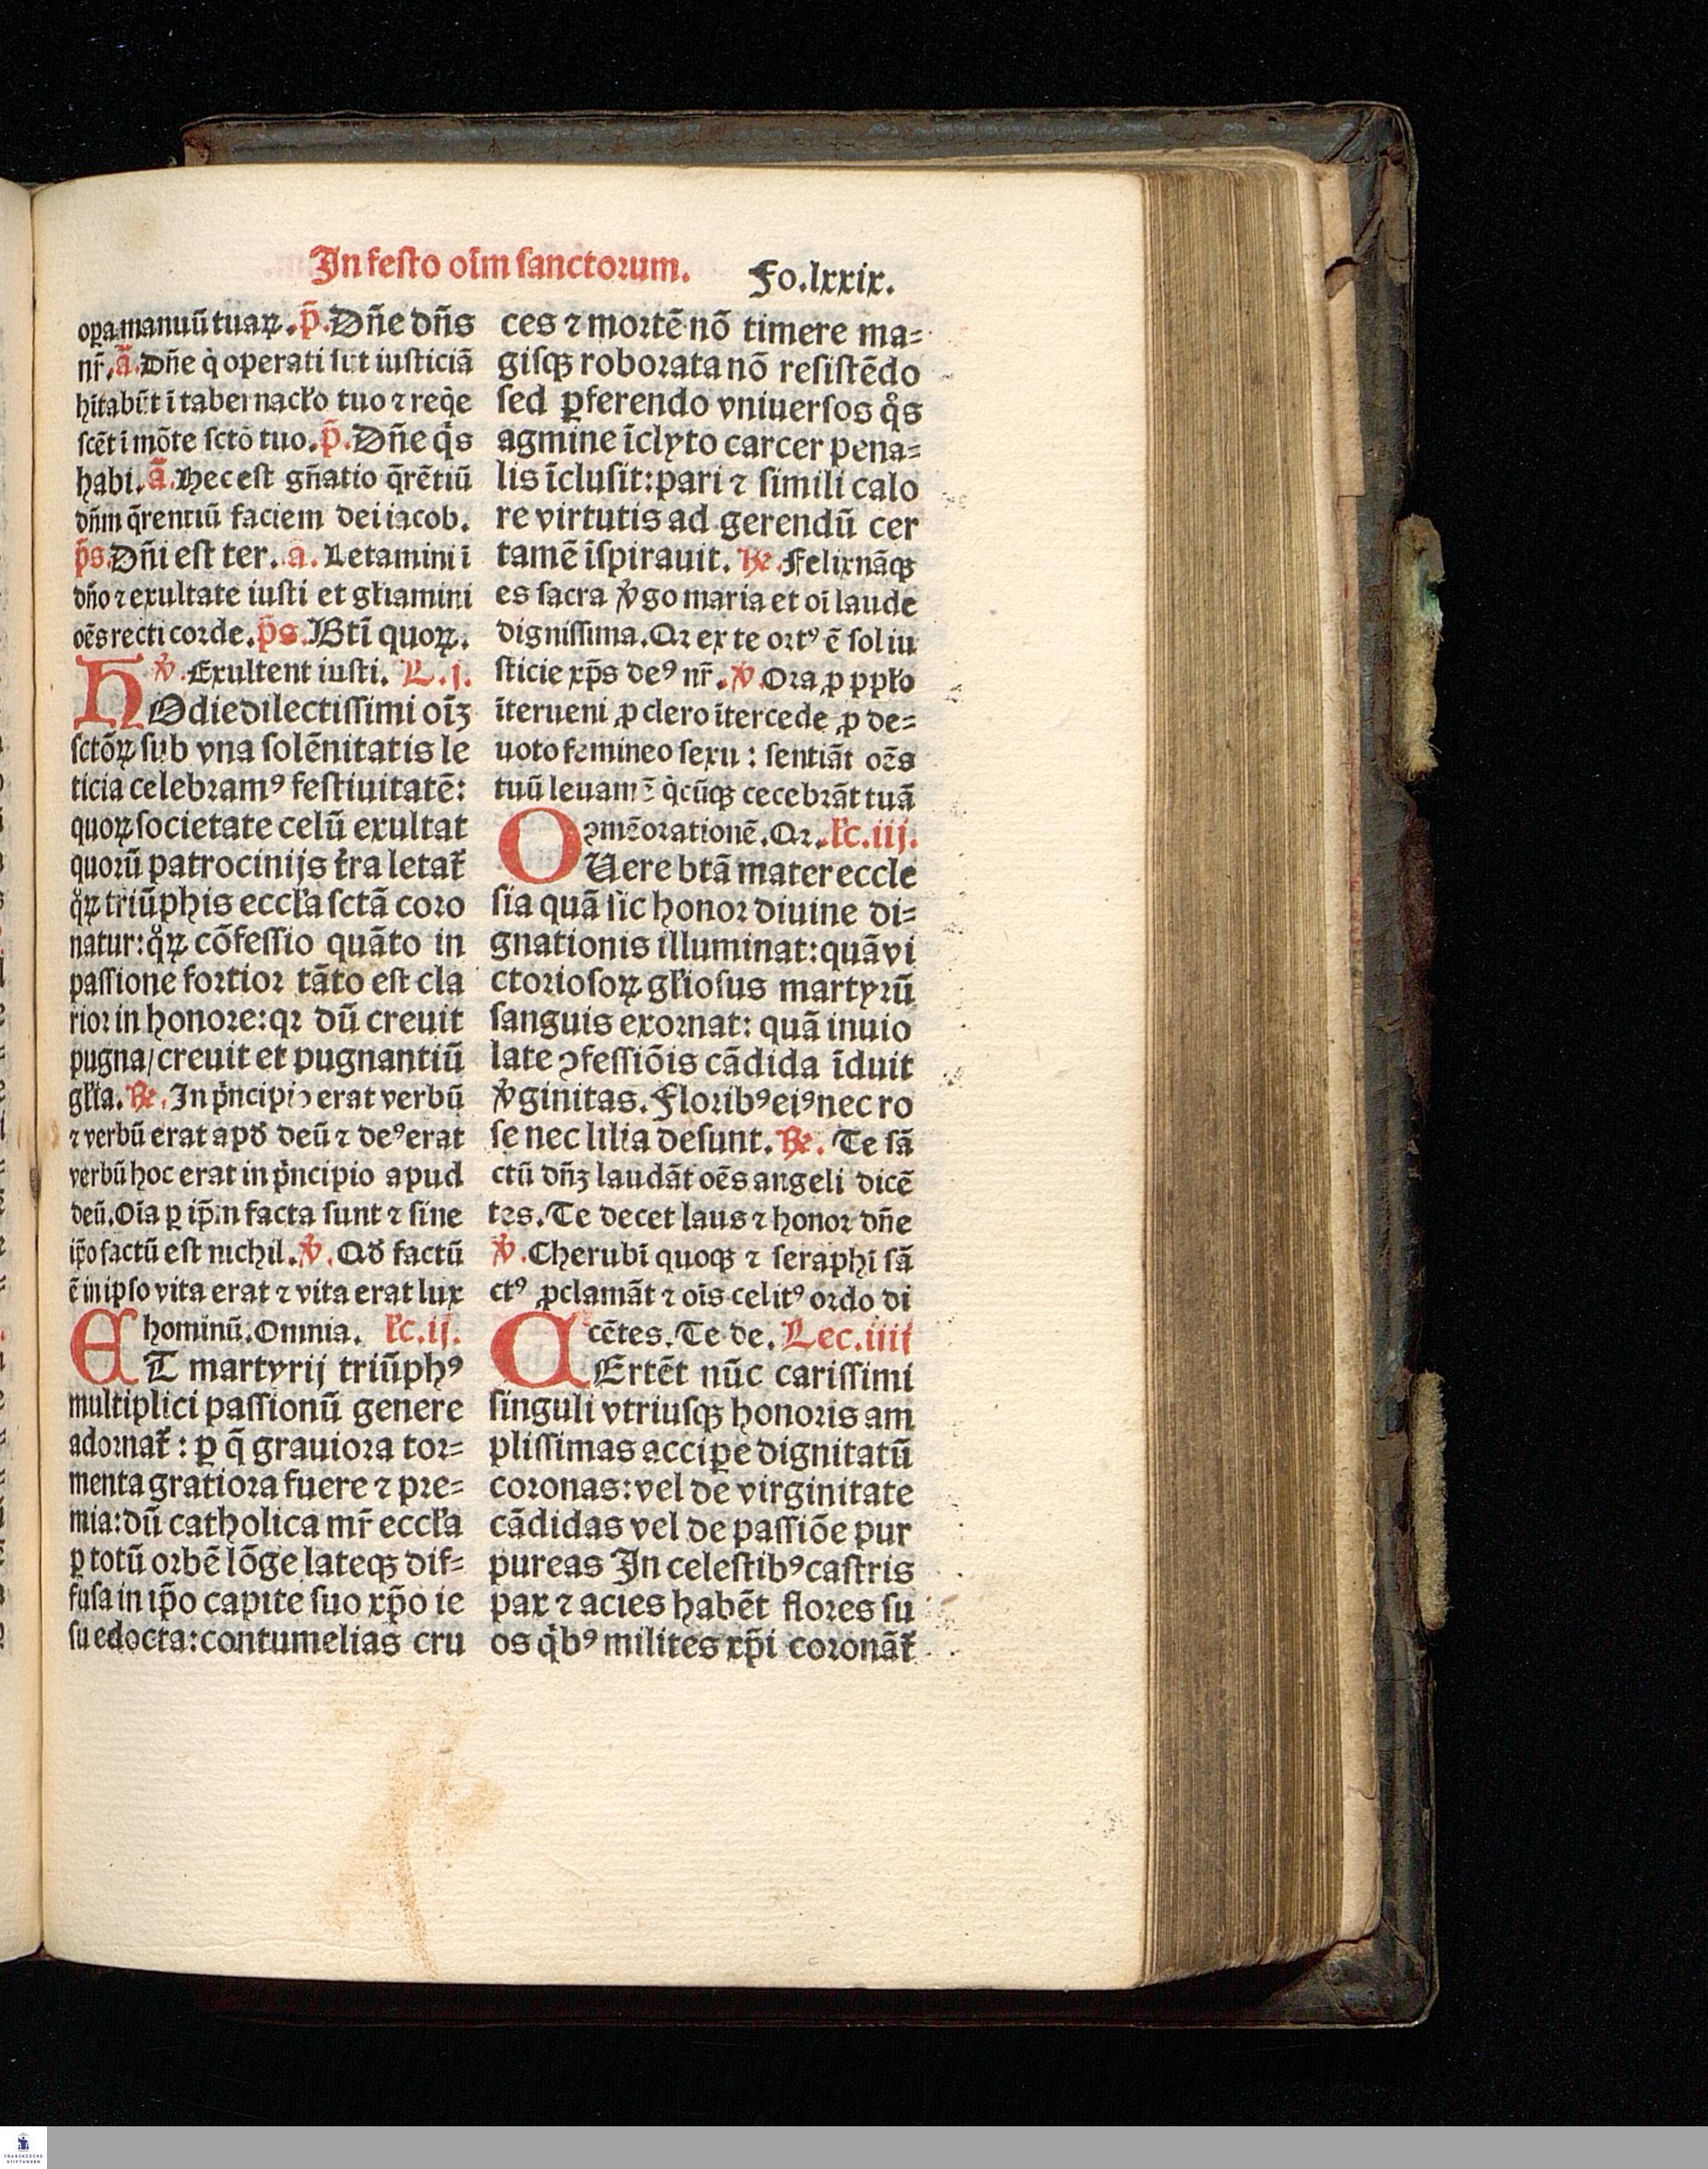 In festo oim̄ sanctorum.
Fo.lxxix.
oꝑa manuū tuaꝝ. p̄. Dn̄e dn̄s
nr̄. ā. Dn̄e q̇ operati sūt iusticiā
hītabūt ī tabernacƚo tuo ⁊ reqͥe
scēt ī mōte sctō tuo. p̄. Dn̄e qͥs
habi. ā. Hec est gn̄atio q̄rētiū
dn̄m q̄rentiū faciem dei iacob.
p̄s. Dn̄i est ter. a. Letamini ī
dn̄o ⁊ exultate iusti et gƚiamini
oēs recti corde. p̄s. Btī quoꝝ.
℣. Exultent iusti. L. j.
HOdie dilectissimi oīꝫ
sctōꝝ sub vna solēnitatis le
ticia celebramꝰ festiuitatē:
quoꝝ societate celū exultat
quorū patrocinijs t̄ra letat̄
qͦꝝ triūphis eccƚa sctā coro
natur: qͦꝝ cōfessio quāto in
passione fortior tāto est cla
rior in honore: qꝛ dū creuit
pugna/ creuit et pugnantiū
gƚia. ℟. In pͥncipio erat verbū
⁊ verbū erat apđ deū ⁊ deꝰ erat
verbū hoc erat in pͥncipio apud
deū. Oīa ꝑ ip̄m facta sunt ⁊ sine
ip̄o factū est nichil. ℣. Qđ factū
ē in ipso vita erat ⁊ vita erat lux
hominū. Omnia. ƚc. ij.
ET martyrij triūphꝰ
multiplici passionū genere
adornat̄: ꝑ q̄ grauiora tor=
menta gratiora fuere ⁊ pre=
mia: dū catholica mr̄ eccƚa
ꝑ totū orbē lōge lateqꝫ dif=
fusa in ip̄o capite suo xp̄o ie
su edocta: contumelias cru
ces ⁊ mortē nō timere ma=
gisqꝫ roborata nō resistēdo
sed ꝑferendo vniuersos qͦs
agmine īclyto carcer pena=
lis īclusit: pari ⁊ simili calo
re virtutis ad gerendū cer
tamē īspirauit. ℟. Felix nāqꝫ
es sacra v̇go maria et oī laude
dignissima. Qꝛ ex te ortꝰ ē sol iu
sticie xp̄s deꝰ nr̄. ℣. Ora ꝓ ppƚo
īterueni ꝓ clero ītercede ꝓ de=
uoto femineo sexu: sentiāt oēs
tuū leuamē q̇cūqꝫ cecebrāt tuā
ꝯmēorationē. Qꝛ. ƚc. iij.
OUere btā mater eccle
sia quā sic honor diuine di=
gnationis illuminat: quā vi
ctoriosoꝝ gƚiosus martyrū
sanguis exornat: quā inuio
late ꝯfessiōis cādida īduit
v̇ginitas. Floribꝰ eiꝰ nec ro
se nec lilia desunt. ℟. Te sā
ctū dn̄ꝫ laudāt oēs angeli dicē
tes. Te decet laus ⁊ honor dn̄e
℣. Cherubī quoqꝫ ⁊ seraphī sā
ctꝰ ꝓclamāt ⁊ oīs celitꝰ ordo di
cētes. Te de. Lec. iiij
CErtēt nūc carissimi
singuli vtriusqꝫ honoris am
plissimas acciꝑe dignitatū
coronas: vel de virginitate
cādidas vel de passiōe pur
pureas In celestibꝰ castris
pax ⁊ acies habēt flores su
os qͥbꝰ milites xp̄i coronāt̄
FRANCKESCHE
STIFTUNGEN